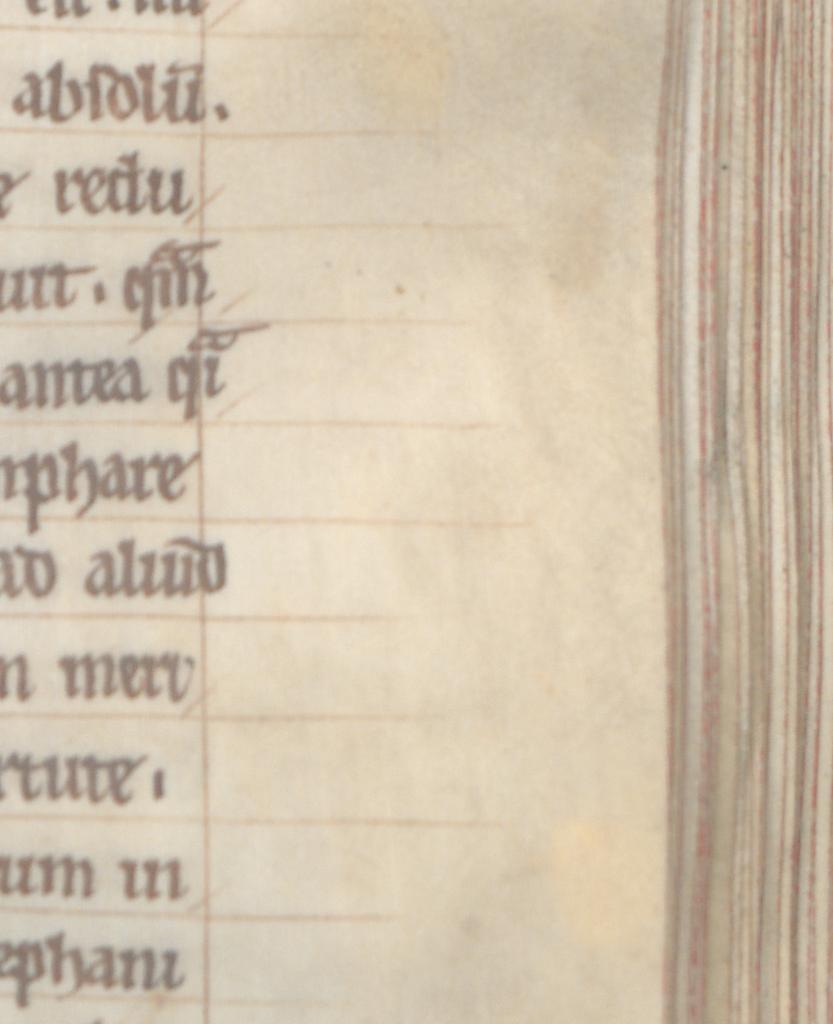 absolū.
redu
uit. qm̄
antea qī
mphare
ad aliud
meru
rtute.
um in
ephani